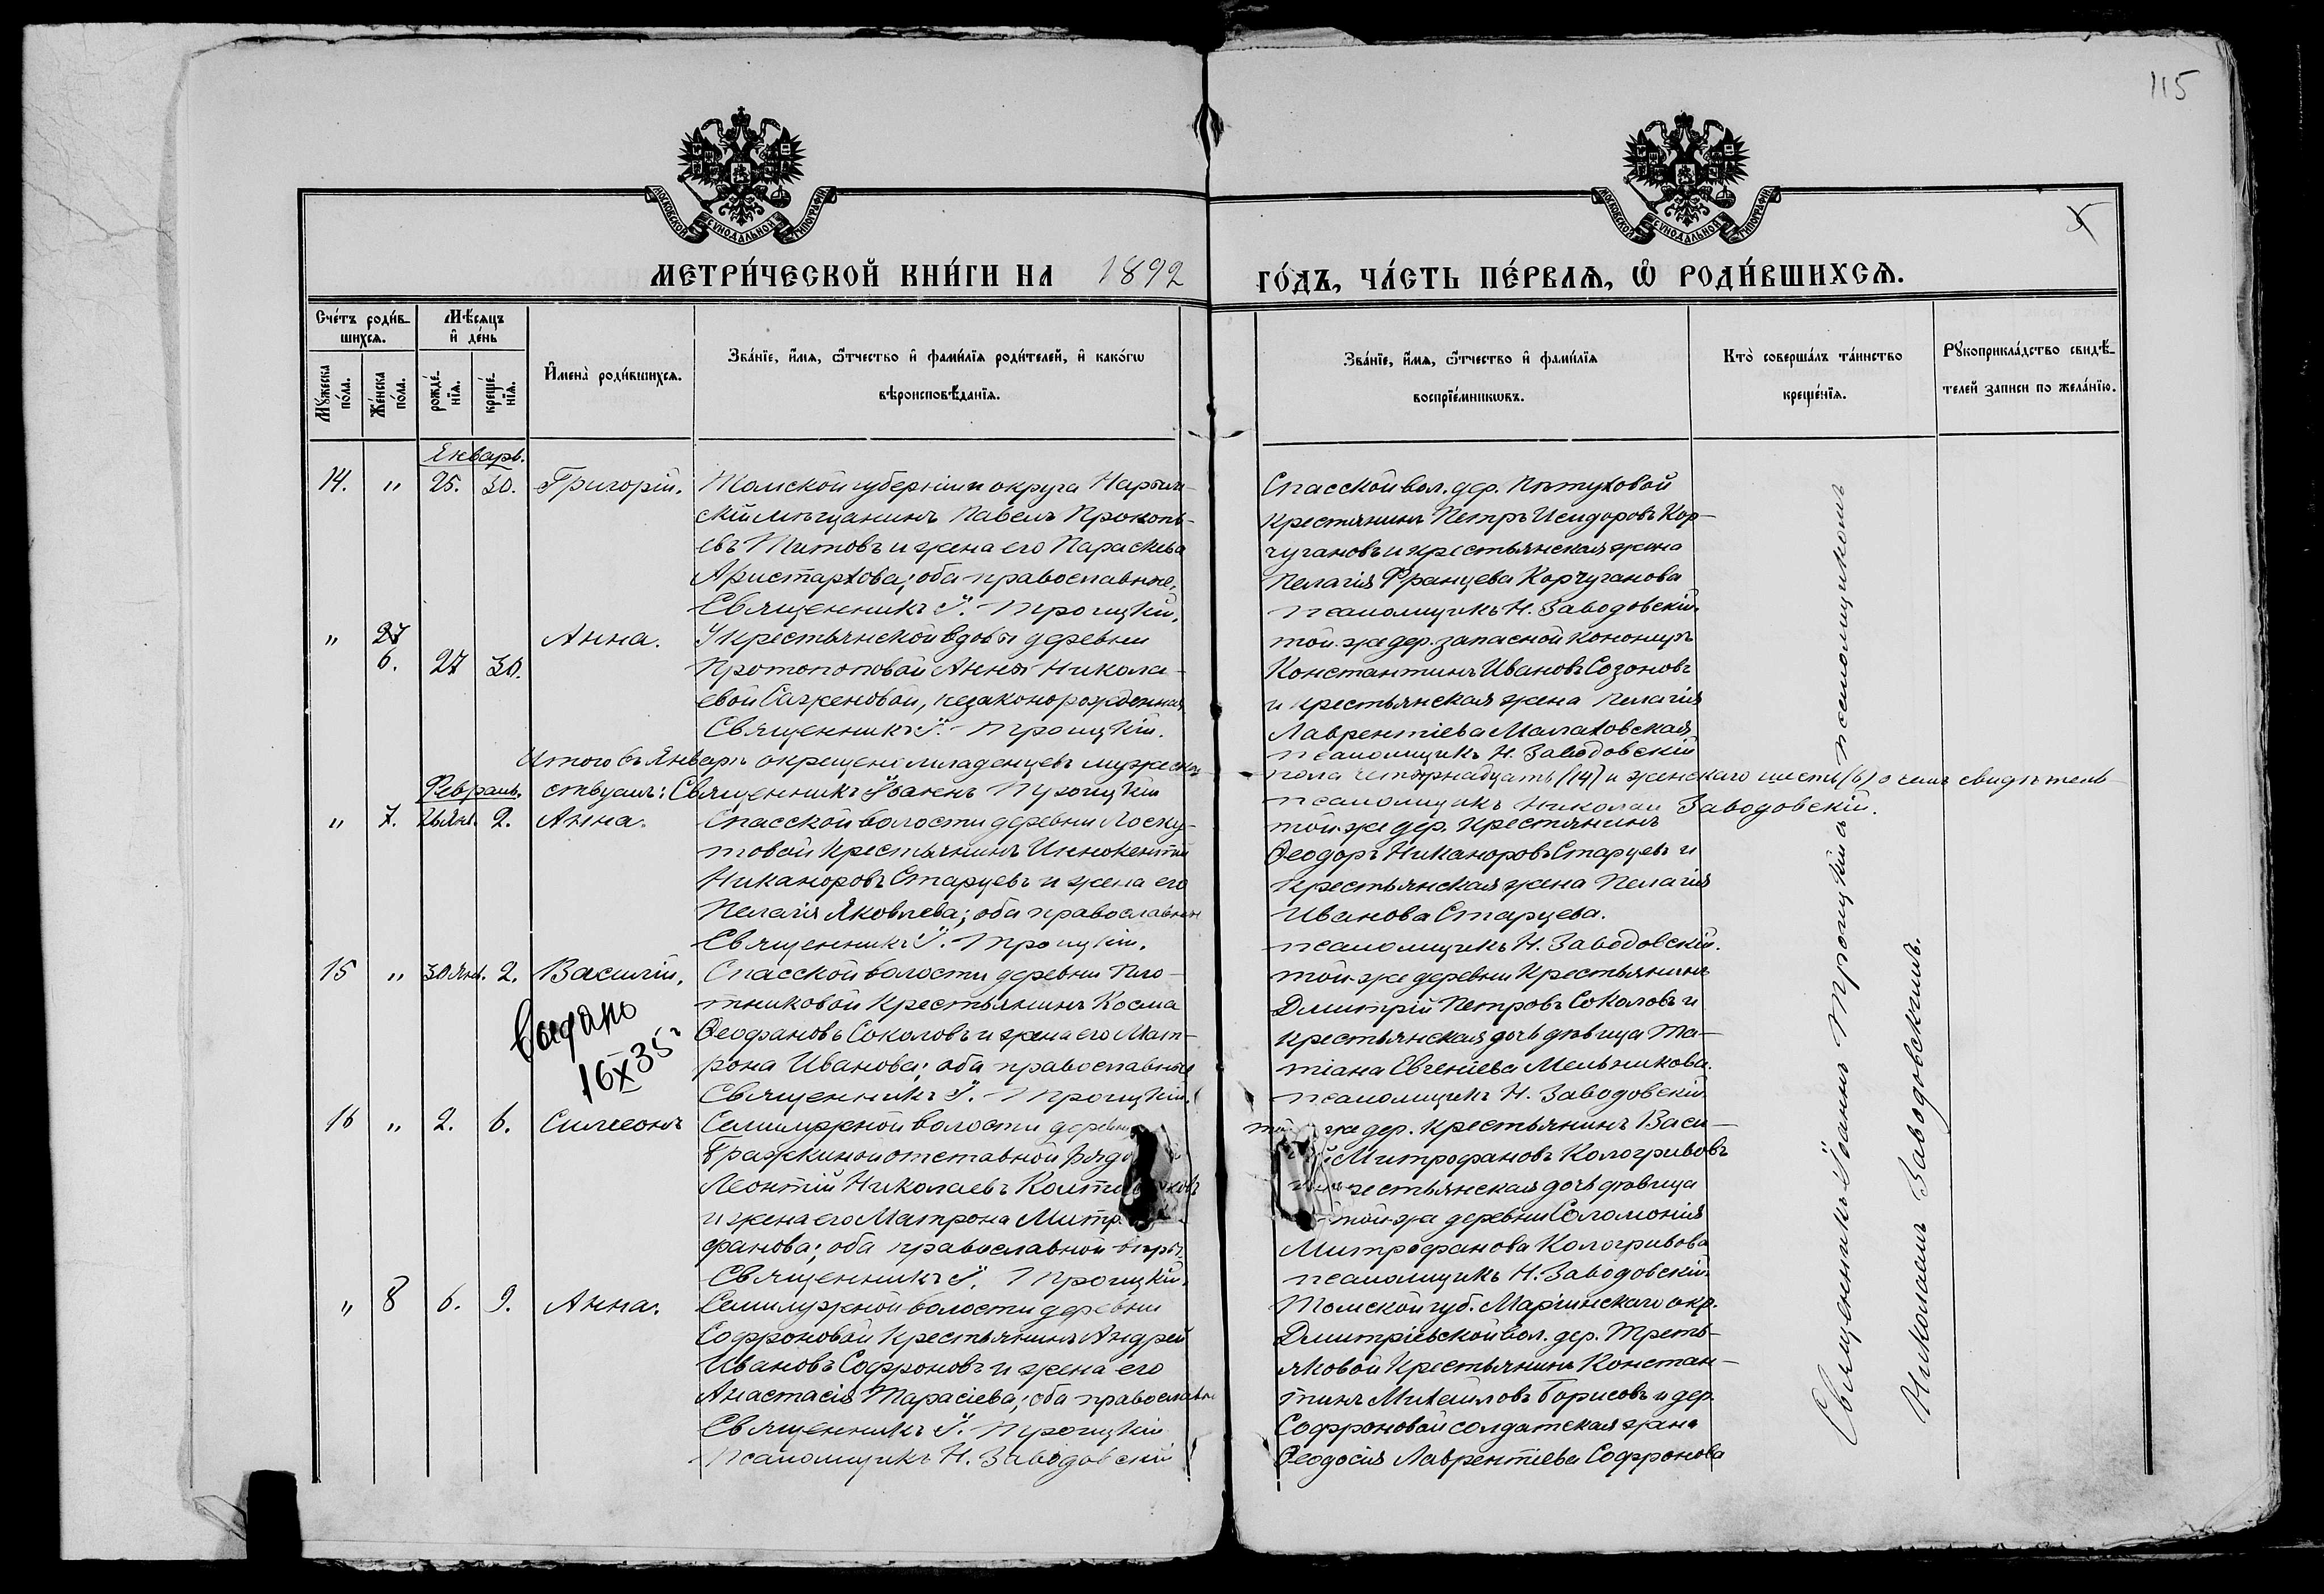 115
МОСКОВСКОЙ СѴНОДАЛЬНОЙ ТИПОГРАФІИ
МОСКОВСКОЙ СѴНОДАЛЬНОЙ ТИПОГРАФІИ
МЕТРИ́ЧЕСКОЙ КНИ́ГИ НА 1892
ГО́ДЪ, ЧА́СТЬ ПЕ́РВАѦ, Ѡ҆ РОДИ́ВШИХСѦ.
Сче́тъ роди́вшихсѧ.
Мꙋ́жеска по́ла.
Же́нска по́ла.
Мѣ́сѧцъ и҆ де́нь
рожде́нїѧ.
креще́нїѧ.
И҆мена̀ роди́вшихсѧ.
Зва́нїе, и҆́мѧ, ѻ҆́тчество и҆ фами́лїѧ роди́телей, и҆ како́гѡ
вѣроисповѣ́данїѧ.
Зва́нїе, и҆́мѧ, ѻ҆́тчество и҆ фами́лїѧ
воспрїе́мникѡвъ.
Кто̀ соверша́лъ та́инство
креще́нїѧ.
Рꙋкоприкла́дство свидѣ́-
телей записи по жела́нїю.
Январь.
14. " 25. 30. Григорій. Томской губерніи и округа Нарым-
скій мѣщанинъ Павелъ Прокопь-
евъ Титовъ и жена его Параскева
Аристархова; оба православные.
Священникъ І. Троицкій.
Спасской вол. дер. Пѣтуховой
крестянинъ Петръ Исидоровъ Кор-
чугановъ и крестьянская жена
Пелагія Францева Корчуганова
псаломщикъ Н. Заводовскій.
" 27
6. 27 30. Анна. У крестьянской вдовы деревни
Протопоповой Анны Никола-
евой Саженовой, незаконорожденная
Священникъ І. Троицкій.
той-же дер. запасной конониръ
Константинъ Ивановъ Созоновъ
и крестьянская жена Пелагія
Лаврентіева Малаховская
псаломщикъ Н. Заводовскій
Итого въ Январѣ окрещено младенцевъ мужеска
пола четырнадцать (14) и женскаго шесть (6) о чемъ свидѣтель-
ствуемъ: Священникъ Іоаннъ Троицкій
псаломщикъ Николай Заводовскій.
Февраль.
" 7. 26 Янв. 2. Анна. Спасской волости деревни Лоску-
товой крестьянинъ Иннокентій
Никаноровъ Старцевъ и жена его
Пелагія Яковлева; оба православные
Священникъ І. Троицкій.
той-же дер. крестянинъ
Ѳеодоръ Никаноровъ Старцевъ и
крестьянская жена Пелагія
Иванова Старцева.
псаломщикъ Н. Заводовскій.
15 " 30 Янв. 2. Василій. Спасской волости деревни Пло-
тниковой крестьянинъ Косма
Ѳеофановъ Соколовъ и жена его Мат-
рона Иванова; оба православные
Священникъ І. Троицкій.
Выдано
16 X 35 г
той-же деревни крестьянинъ
Дмитрій Петровъ Соколовъ и
крестьянская дочь дѣвица Та-
тіана Евгеніева Мельникова.
псаломщикъ Н. Заводовскій
16 " 2. 6. Симеонъ Семилужной волости деревни
Бражкиной отставной
Леонтій Николаевъ
и жена его Матрона Митр
фанова; оба православной вѣры.
Священникъ І. Троицкій.
же дер. крестьянинъ Васи-
Митрофановъ Кологривовъ
дочь дѣвица
той-же деревни Соломонія
Митрофанова Кологривова
псаломщикъ Н. Заводовскій
" 8 6. 9. Анна. Семилужной волости деревни
Софроновой крестьянинъ Андрей
Ивановъ Софроновъ и жена его
Анастасія Тарасіева; оба православные
Священникъ І. Троицкій
псаломщикъ Н. Заводовскій
Томской губ. Маріинскаго окр.
Дмитріевской вол. дер. Треть-
яковой крестьянинъ Констан-
тинъ Михаиловъ Борисовъ и дер.
Софроновой солдатская жена
Ѳеодосія Лаврентіева Софронова
Священникъ Іоаннъ Троицкій съ псаломщикомъ
Николаемъ Заводовскимъ.